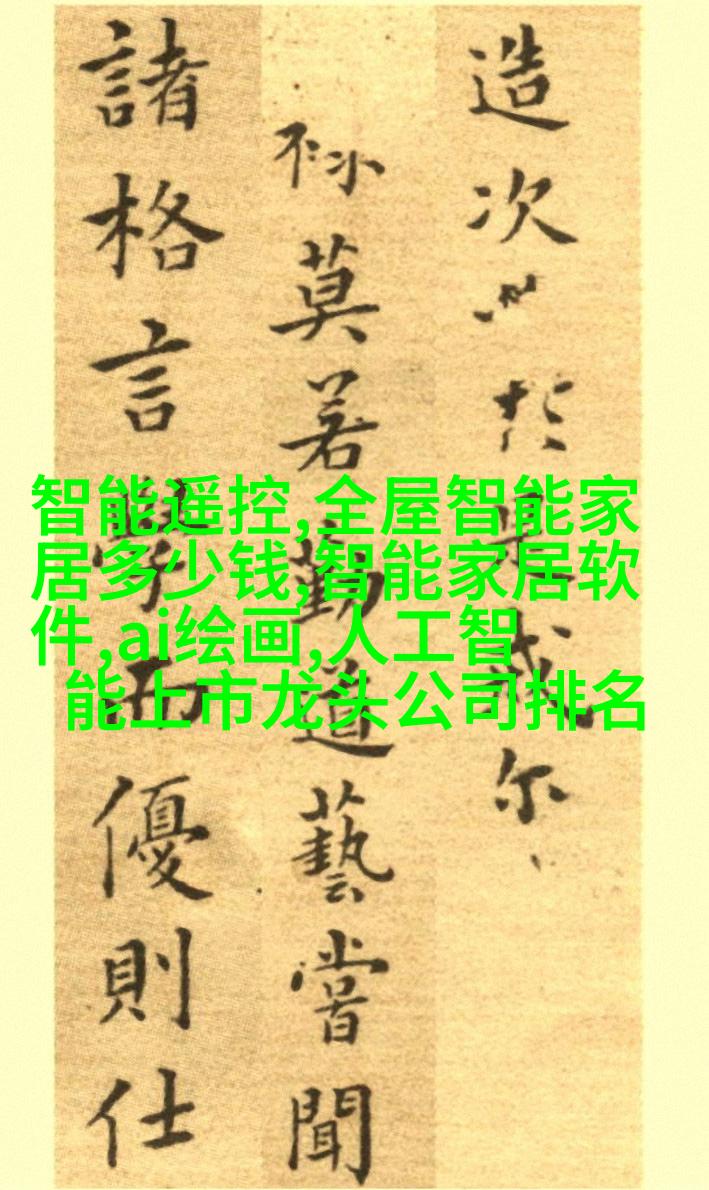 造次於是戒尔
莫若勤道藝嘗聞
諸格言學而優則仕
智能遥控,全屋智能家
居多少钱,智能家居软
件,ai绘画,人工智
能上市龙头公司排名